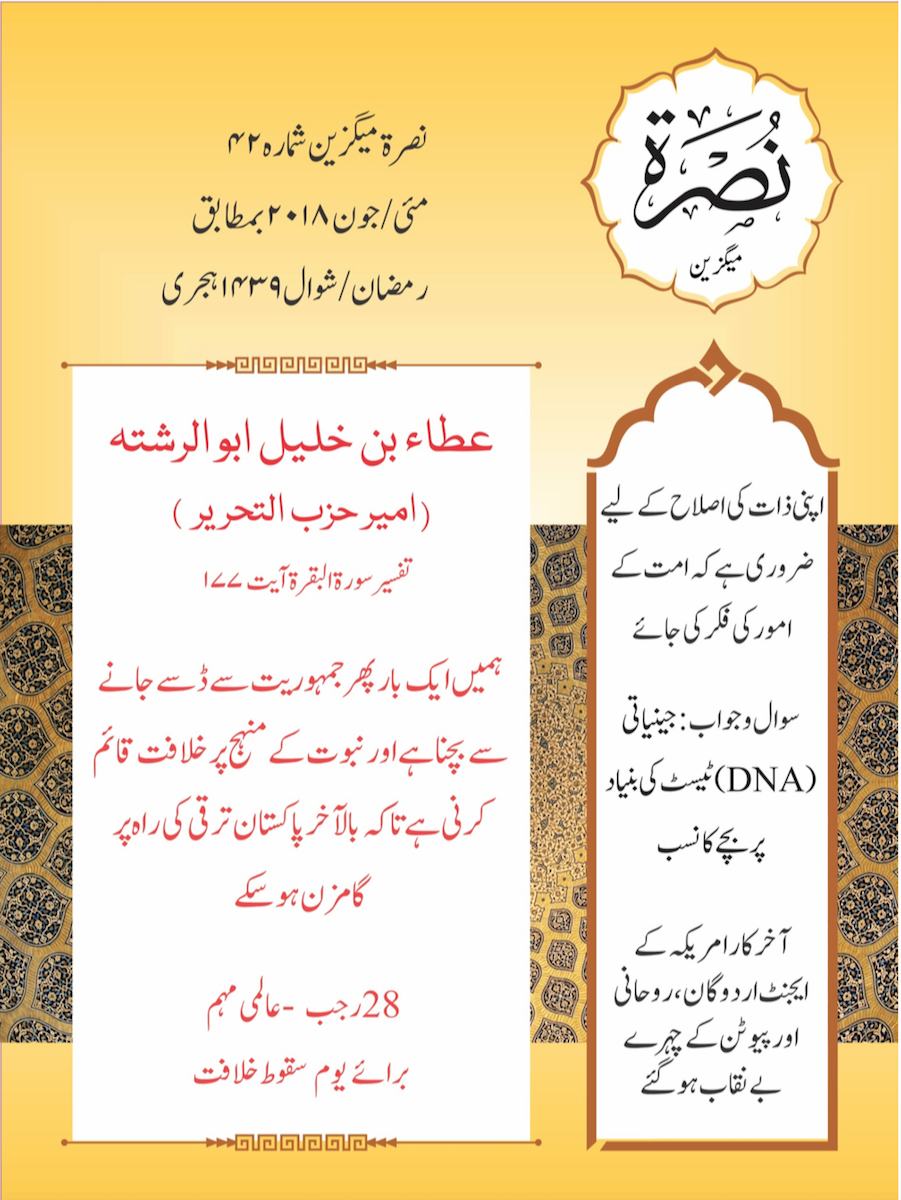 نُصْرَة
میگزین
نصرۃ میگزین شمارہ ۴۲
مئی/جون ۲۰۱۸ بمطابق
رمضان/شوال ۱۴۳۹ ہجری
اپنی ذات کی اصلاح کے لیے
ضروری ہے کہ امت کے
امور کی فکر کی جائے
سوال و جواب: جینیاتی
(DNA) ٹیسٹ کی بنیاد
پر بچے کا نسب
آخر کار امریکہ کے
ایجنٹ اردوگان، روحانی
اور پیوٹن کے چہرے
بے نقاب ہو گئے
عطاء بن خلیل ابو الرشتہ
(امیر حزب التحریر)
تفسیر سورۃ البقرۃ آیت ۱۷۷
ہمیں ایک بار پھر جمہوریت سے ڈسے جانے
سے بچنا ہے اور نبوت کے منہج پر خلافت قائم
کرنی ہے تاکہ بالآخر پاکستان ترقی کی راہ پر
گامزن ہو سکے
28 رجب - عالمی مہم
برائے یوم سقوط خلافت